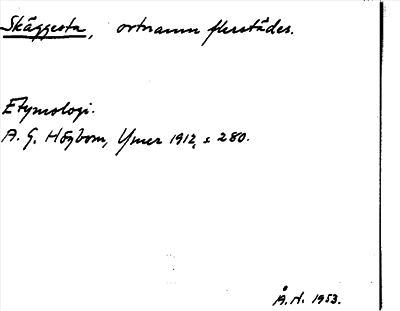 Skäggesta, ortnamn flerstädes.
Etymologi.
A. G. Högbom, Ymer 1912, s. 280.
Å. N. 1953.